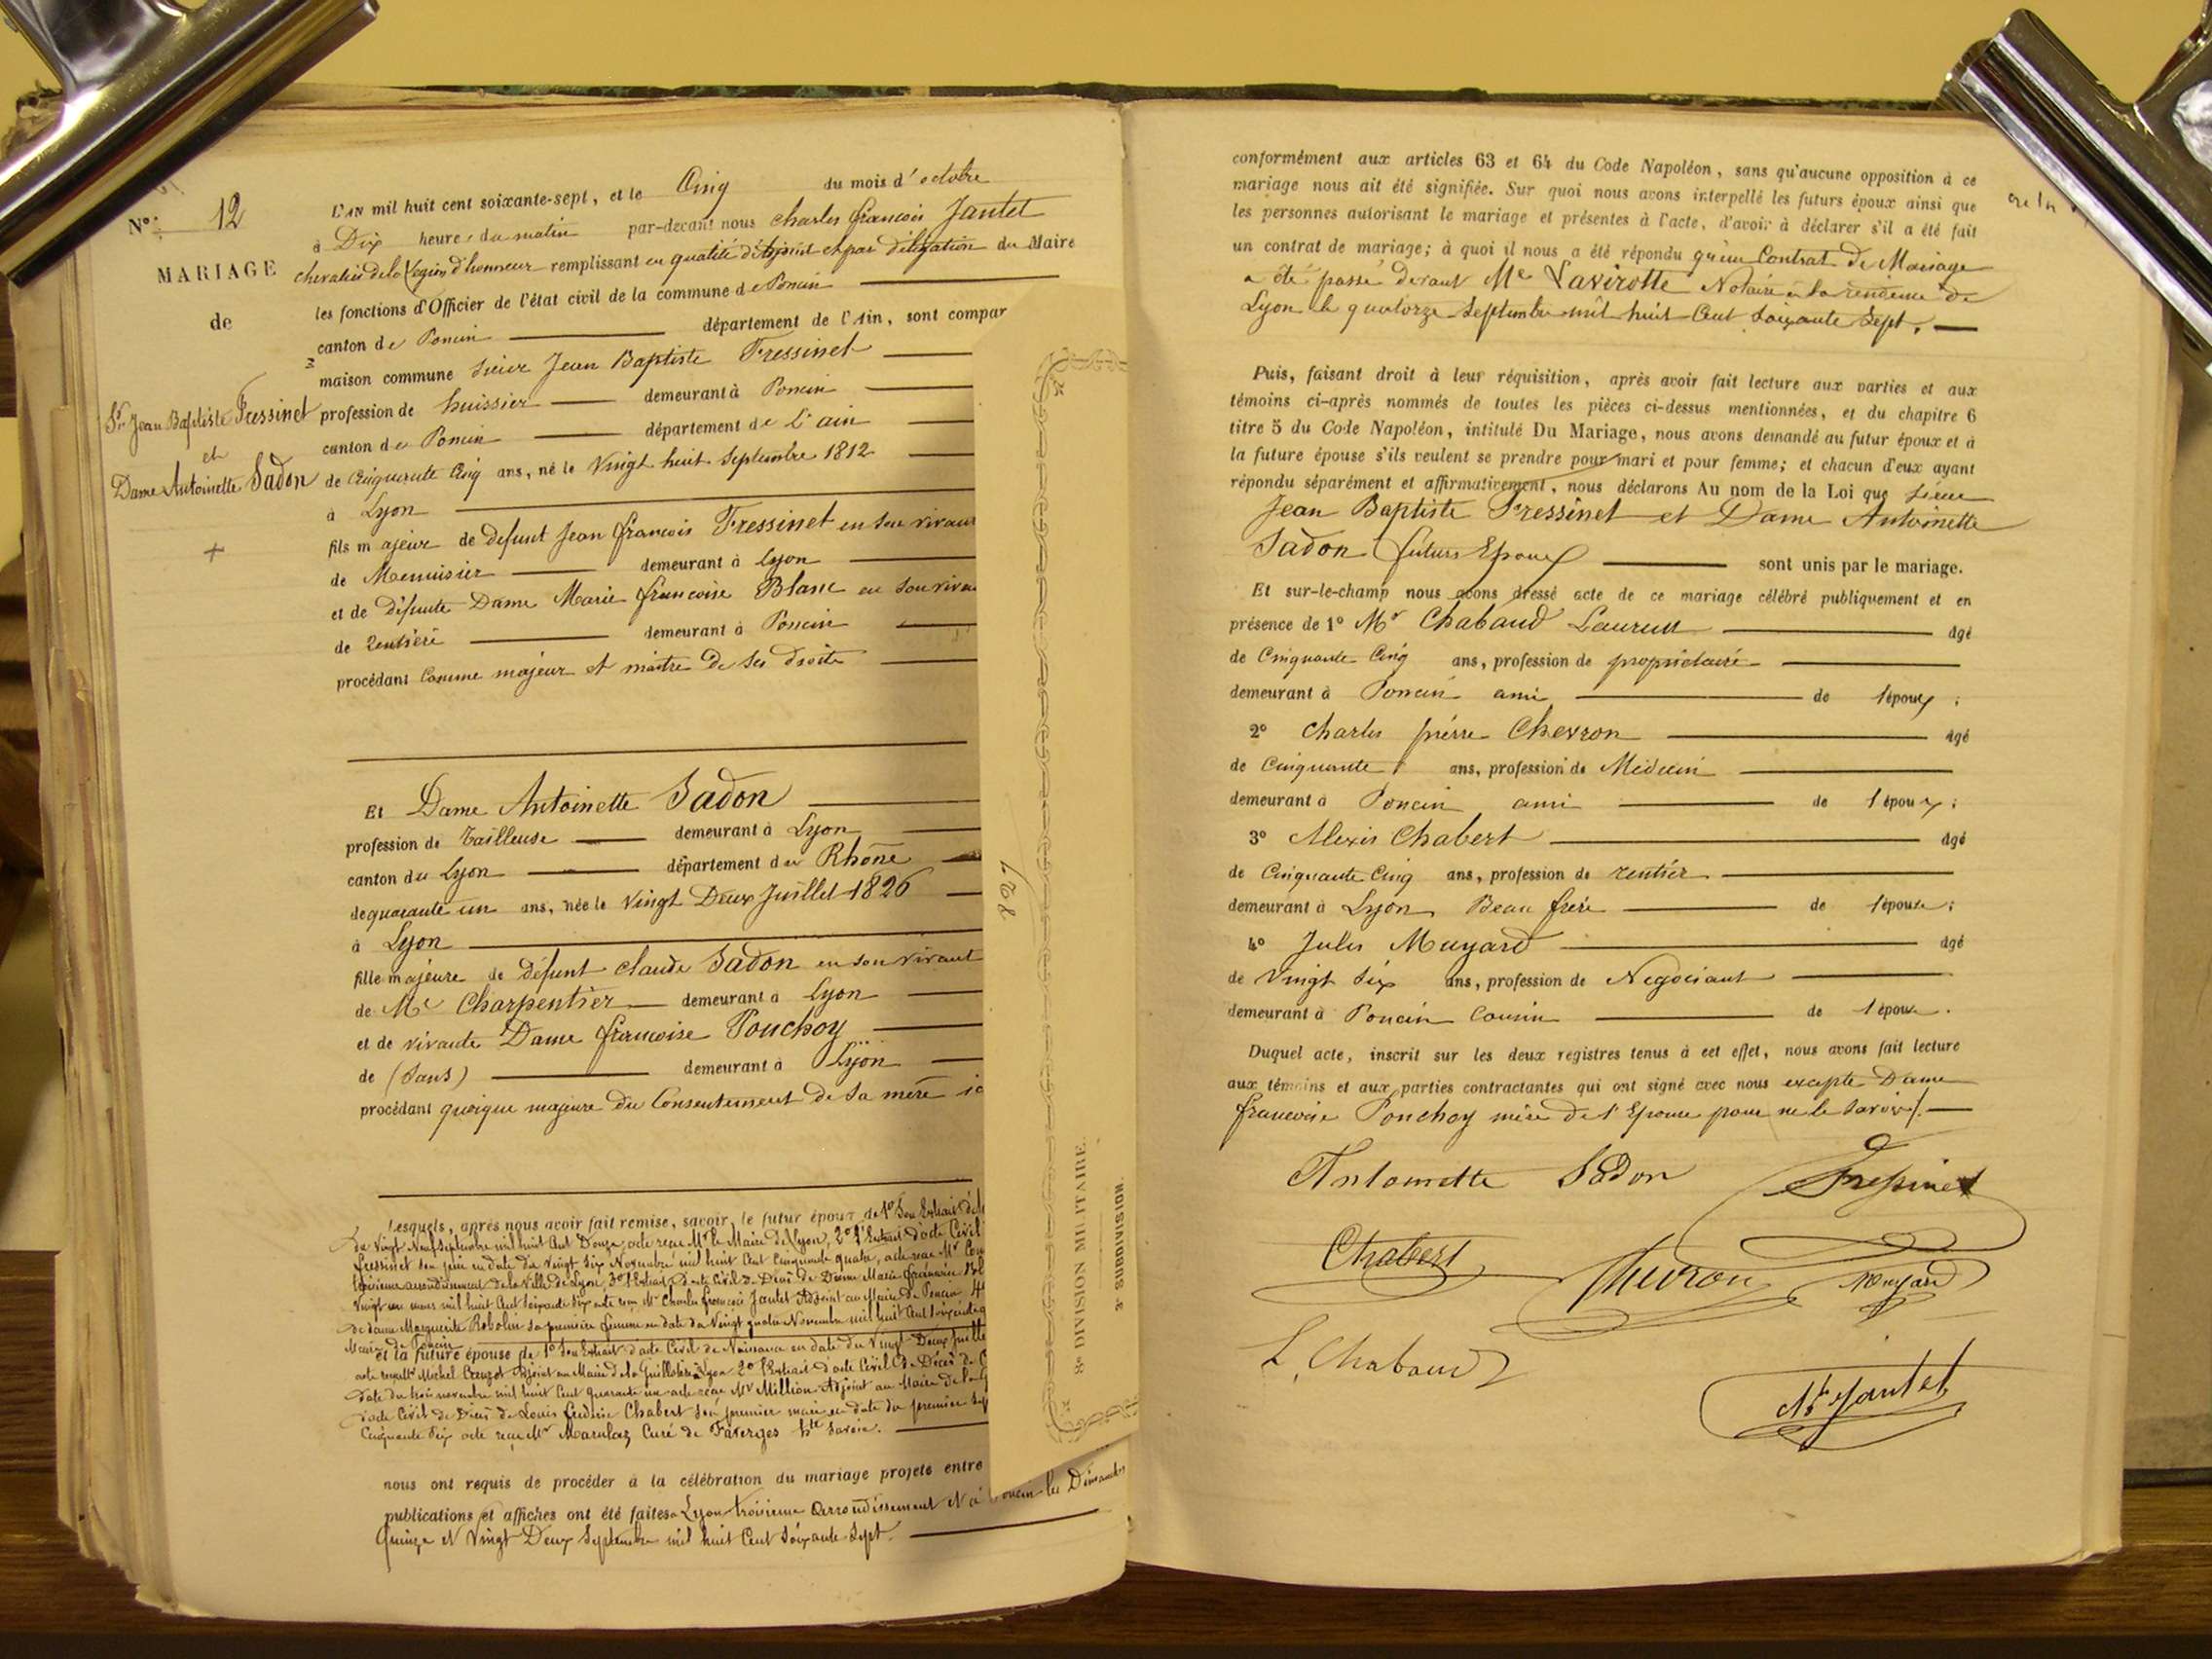 N°: 12
MARIAGE
de
Sr Jean Baptiste Fressinet
et
Dame Antoinette Sadon
L'AN mil huit cent soixante-sept, et le Cinq du mois d'octobre
à Dix heures du matin par-devant nous Charles françois Jantet
chevalier de la Legion d'honneur remplissant en qualité d'adjoint et par délégation du Maire
les fonctions d'Officier de l'état civil de la commune de Poncin
canton de Poncin département de l'Ain, sont compar
maison commune Sieur Jean Baptiste Fressinet
profession de huissier demeurant à Poncin
canton de Poncin département de L'ain
de Cinquante Cinq ans, né le Vingt huit Septembre 1812
à Lyon
fils majeur de defunt Jean françois Fressinet en son vivant
de Menuisier demeurant à Lyon
et de défunte Dame Marie françoise Blanc en son vivan
de Rentière demeurant à Poncin
procédant Comme majeur et maître de ses droits
Et Dame Antoinette Sadon
profession de Tailleuse demeurant à Lyon
canton du Lyon département du Rhône
de quarante un ans, née le Vingt Deux Juillet 1826
à Lyon
fille majeure de défunt Claude Sadon en son vivant
de Me Charpentier demeurant à Lyon
et de vivante Dame françoise Pouchoy
de (Sans) demeurant à Lyon
procédant quoique majeure du Consentement de Sa mère
Lesquels, après nous avoir fait remise, savoir, le futur époux de 1° Son Extrait
du Vingt Neuf Septembre mil huit Cent Douze, acte reçu Mr le Maire de Lyon, 2° l'Extrait d'acte Civil
fressinet son père en date du vingt Six Novembre mil huit Cent Cinquante quatre, acte reçu Mr
troisieme arrondissement de la Ville de Lyon, 3° l'Extrait d'acte Civil de Décès de Dame Marie françoise
Vingt un mars mil huit Cent Soixante Six acte reçu Mr Charles françois Jantet Adjoint au Maire de Poncin
de dame Marguerite Robolin sa première femme en date du Vingt quatre Novembre mil huit Cent soixante
Maire de Poncin
et la future épouse de 1° Son Extrait d'acte Civil de Naissance en date du Vingt Deux
acte reçu Mr Michel Crouzot Adjoint au Maire de la Guillotière Lyon 2° l'Extrait d'acte Civil de Décès de
date du trois novembre mil huit Cent quarante un acte reçu Mr Million Adjoint au Maire de la
d'acte Civil de Décès de Louis Frédéric Chabert Son premier mari en date du premier
Cinquante Six acte reçu Mr Marulaz Curé de Faverges hte Savoie.
nous ont requis de procéder à la célébration du mariage projeté entre
publications et affiches ont été faites à Lyon troisieme Arrondissement et à Poncin les Dimanches
Quinze et Vingt Deux Septembre mil huit Cent Soixante Sept.
827
8e DIVISION MILITAIRE.
3e SUBDIVISION.
conformément aux articles 63 et 64 du Code Napoléon, sans qu'aucune opposition à ce
mariage nous ait été signifiée. Sur quoi nous avons interpellé les futurs époux ainsi que
les personnes autorisant le mariage et présentes à l'acte, d'avoir à déclarer s'il a été fait
un contrat de mariage; à quoi il nous a été répondu qu'un Contrat de Mariage
a été passé devant Me Lavirotte Notaire à la résidence de
Lyon le quatorze Septembre mil huit Cent Soixante Sept.
Puis, faisant droit à leur réquisition, après avoir fait lecture aux parties et aux
témoins ci-après nommés de toutes les pièces ci-dessus mentionnées, et du chapitre 6
titre 5 du Code Napoléon, intitulé Du Mariage, nous avons demandé au futur époux et à
la future épouse s'ils veulent se prendre pour mari et pour femme; et chacun d'eux ayant
répondu séparément et affirmativement, nous déclarons Au nom de la Loi que Sieur
Jean Baptiste Fressinet et Dame Antoinette
Sadon futurs Epoux sont unis par le mariage.
Et sur-le-champ nous avons dressé acte de ce mariage célébré publiquement et en
présence de 1° Mr Chabaud Laurent âgé
de Cinquante Cinq ans, profession de propriétaire
demeurant à Poncin ami de l'époux;
2° Charles pierre Chevron âgé
de Cinquante ans, profession de Médecin
demeurant à Poncin ami de l'époux;
3° Alexis Chabert âgé
de Cinquante Cinq ans, profession de rentier
demeurant à Lyon Beau frère de l'épouse;
4° Jules Muyard âgé
de Vingt Six ans, profession de Negociant
demeurant à Poncin Cousin de l'épouse.
Duquel acte, inscrit sur les deux registres tenus à cet effet, nous avons fait lecture
aux témoins et aux parties contractantes qui ont signé avec nous excepté Dame
françoise Pouchoy mère de l'Epouse pour ne le savoir.
Antoinette Sadon Fressinet
Chabert Chevron Muyard
L. Chabaud
Jantet